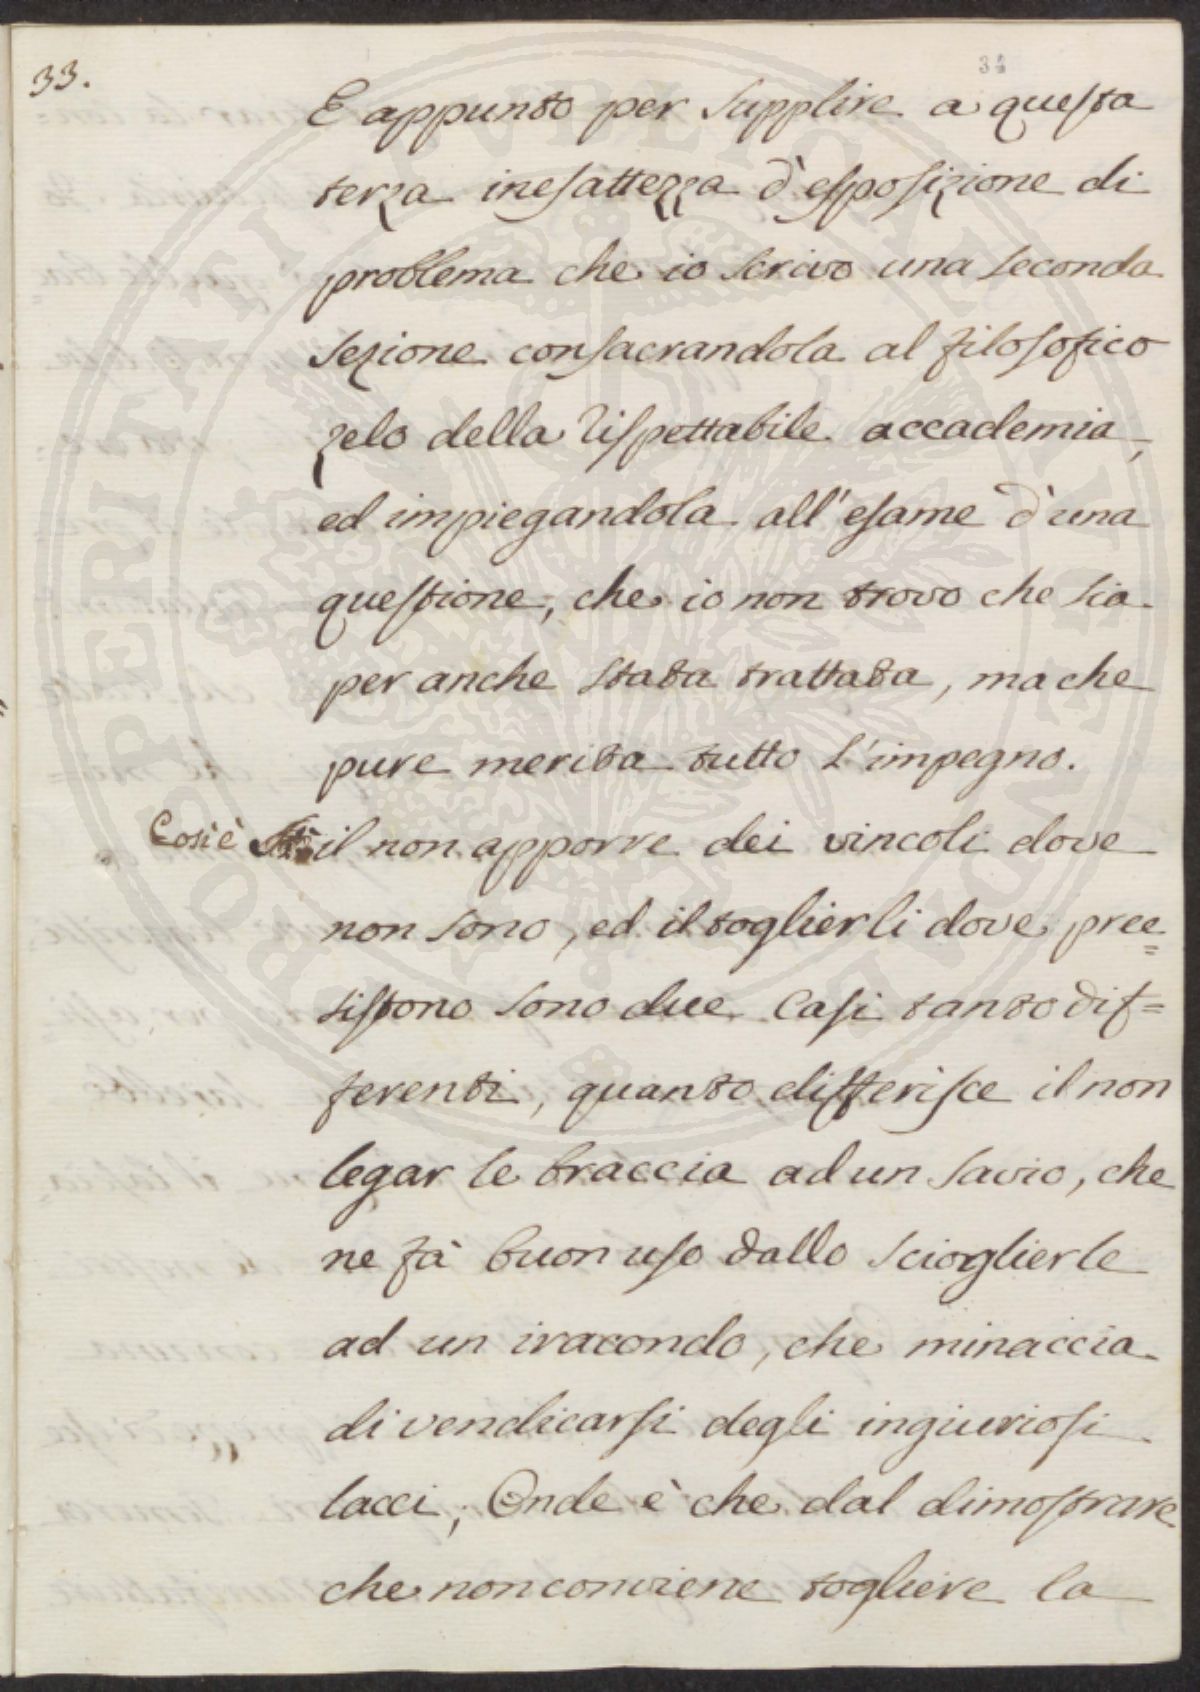 33.
34
E appunto per supplire a questa
terza inesattezza d'esposizione di
problema che io scrivo una seconda
sezione consacrandola al filosofico
zelo della rispettabile accademia,
ed impiegandola all'esame d'una
questione, che io non trovo che sia
per anche stata trattata, ma che
pure merita tutto l'impegno.
Così è il non apporre dei vincoli dove
non sono, ed il toglierli dove pree=
sistono sono due Casi tanto dif=
ferenti, quanto differisce il non
legar le braccia ad un savio, che
ne fà buon uso dallo scioglierle
ad un iracondo, che minaccia
di vendicarsi degli ingiuriosi
lacci; Onde è che dal dimostrare
che non conviene togliere la
PROSPERITATI PUBLICAE AUGENDAE